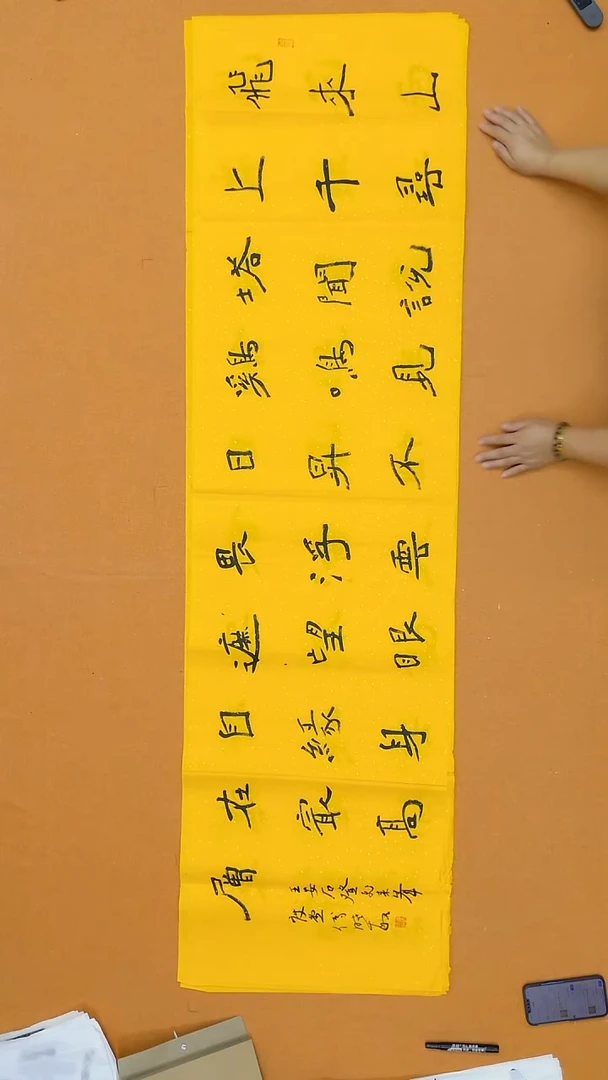 飛來山
上千尋
塔聞說
鷄鳴見
日昇不
畏浮雲
遮望眼
自緣身
在最高
層
王安石登飛來峰